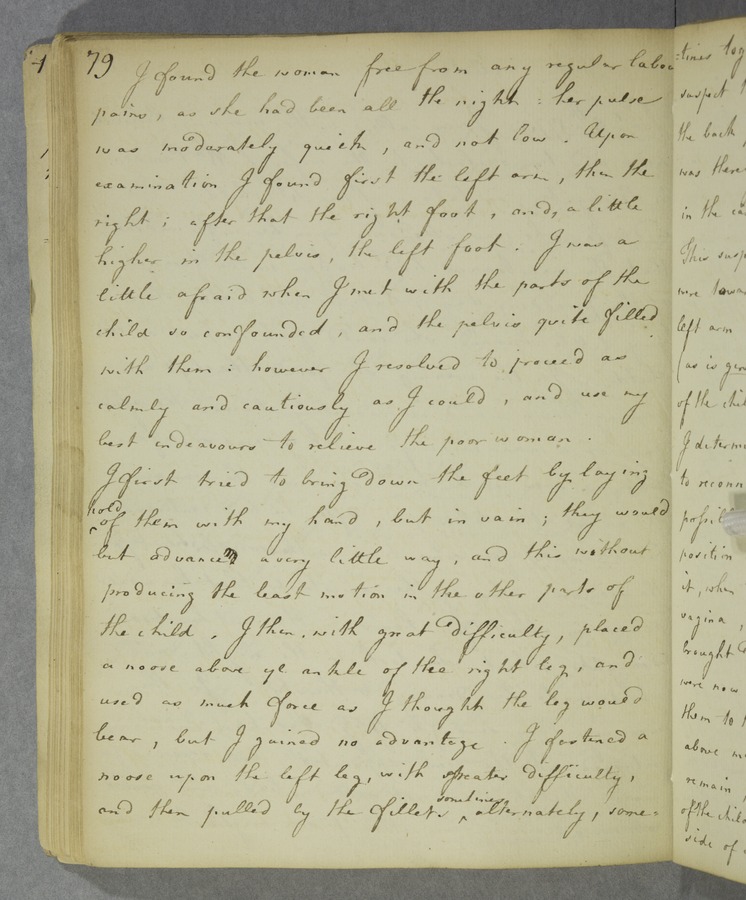 79
I found the woman free from any regular labou
pains, as she had been all the night : her pulse
was moderately quick, and not low. Upon
examination I found first the left arm, then the
right ; after that the right foot, and, a little
higher in the pelvis, the left foot. I was a
little afraid when I met with the parts of the
child so confounded, and the pelvis quite filled
with them : however I resolved to proceed as
calmly and cautiously as I could, and use my
best endeavours to relieve the poor woman.
I first tried to bring down the feet by laying
hold
of them with my hand, but in vain ; they would
but advance a very little way, and this without
producing the least motion in the other parts of
the child. I then, with great difficulty, placed
a noose above ye ankle of the right leg, and
used as much force as I thought the leg would
bear, but I gained no advantage. I fastened a
noose upon the left leg, with greater difficulty,
sometimes
and then pulled by the fillets alternately, some=
:tines tog
suspect
the back
was there
in the ca
This susp
were towa
left arm
(as is gen
of the chil
I determ
to reconn
possib
position
it, when
vagina,
brought
were now
them to
above m
remain
of the child
side of